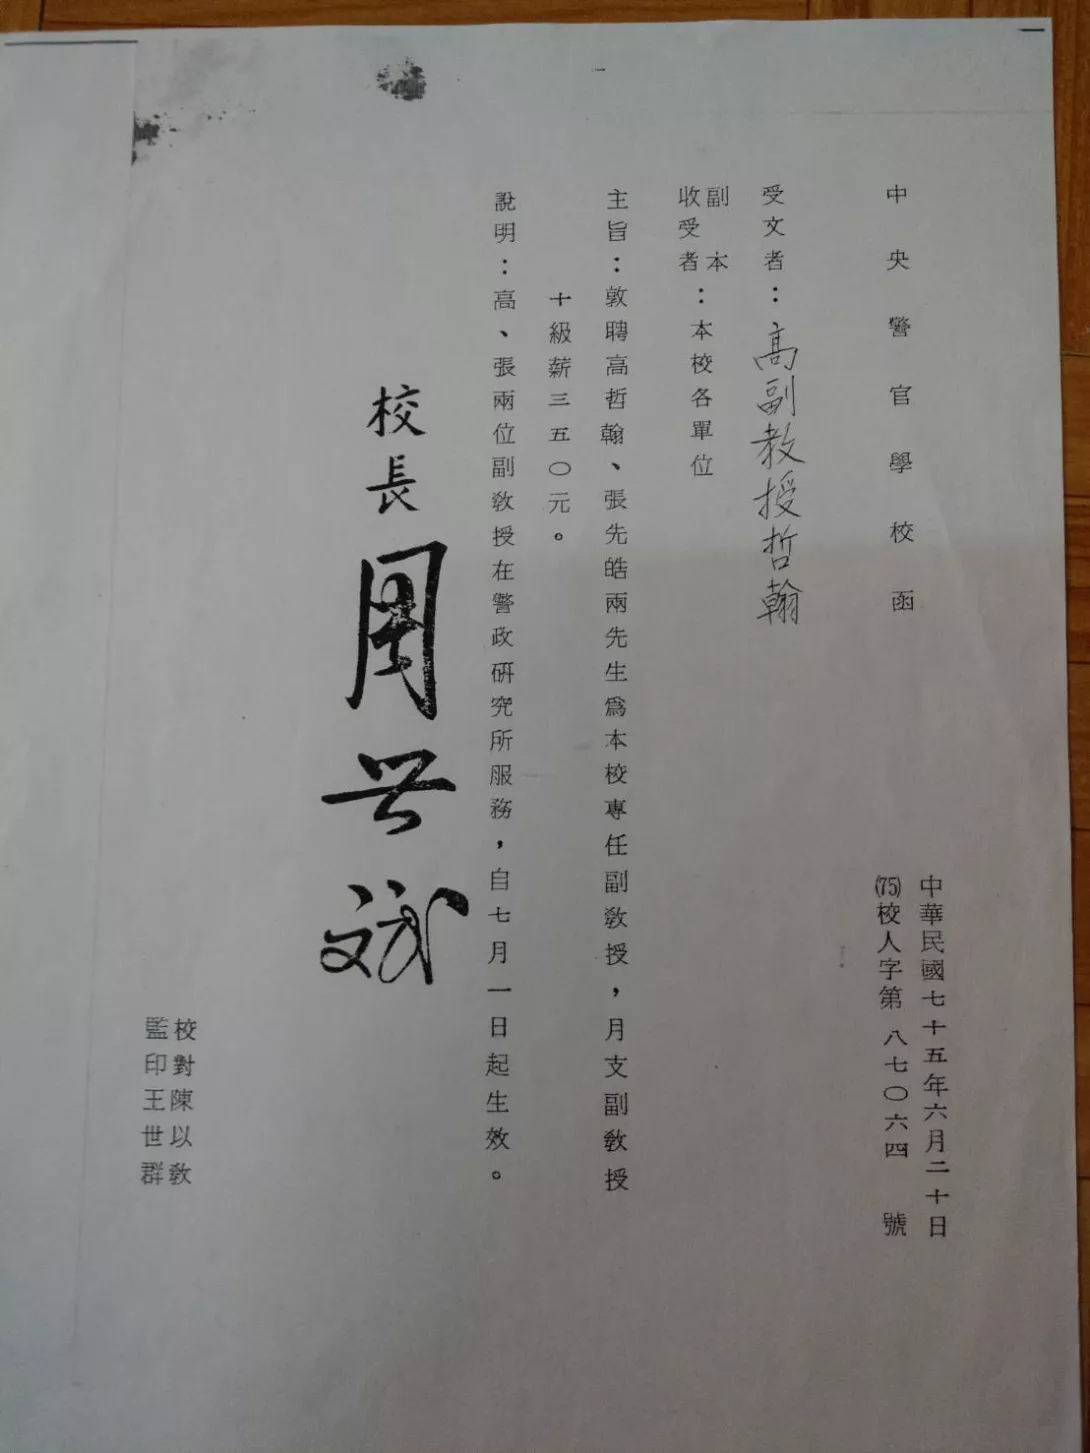 中央警官學校函
中華民國七十五年六月二十日
(75)校人字第八七〇六四 號
受文者：高副教授哲翰
副本
收受者：本校各單位
主旨：敦聘高哲翰、張先皓兩先生爲本校專任副敎授，月支副敎授
十級薪三五〇元。
說明：高、張兩位副敎授在警政硏究所服務，自七月一日起生效。
校長 周世斌
校對陳以敎
監印王世群